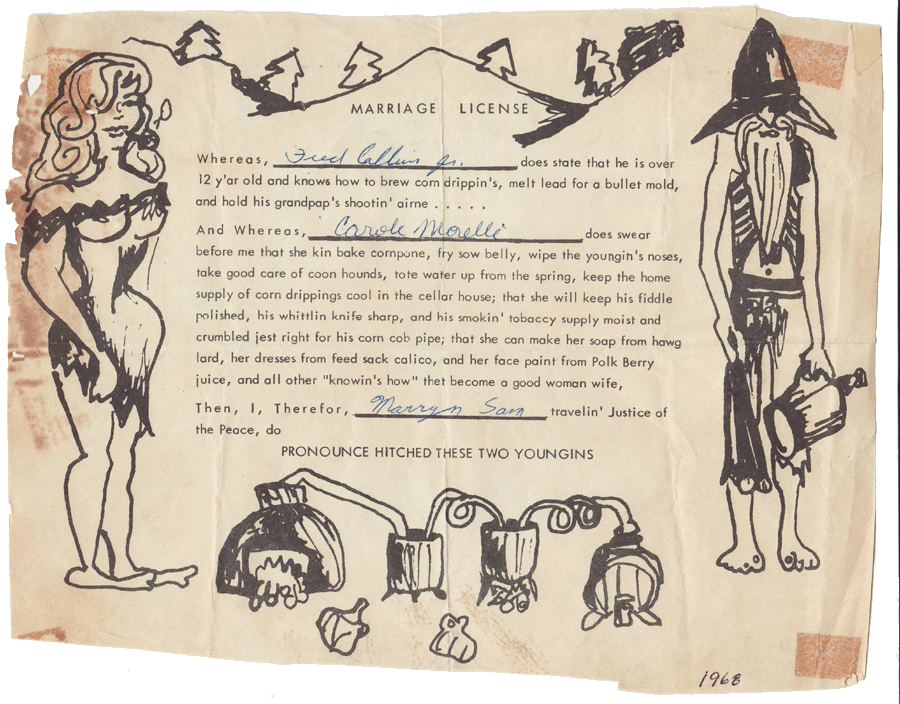 MARRIAGE LICENSE
Whereas, Fred Collins Jr. does state that he is over
12 y'ar old and knows how to brew corn drippin's, melt lead for a bullet mold,
and hold his grandpap's shootin' airne . . . . .
And Whereas, Carole Morelli does swear
before me that she kin bake cornpone, fry sow belly, wipe the youngin's noses,
take good care of coon hounds, tote water up from the spring, keep the home
supply of corn drippings cool in the cellar house; that she will keep his fiddle
polished, his whittlin knife sharp, and his smokin' tobaccy supply moist and
crumbled jest right for his corn cob pipe; that she can make her soap from hawg
lard, her dresses from feed sack calico, and her face paint from Polk Berry
juice, and all other "knowin's how" thet become a good woman wife,
Then, I, Therefor, Marryn Sam travelin' Justice of
the Peace, do
PRONOUNCE HITCHED THESE TWO YOUNGINS
1968